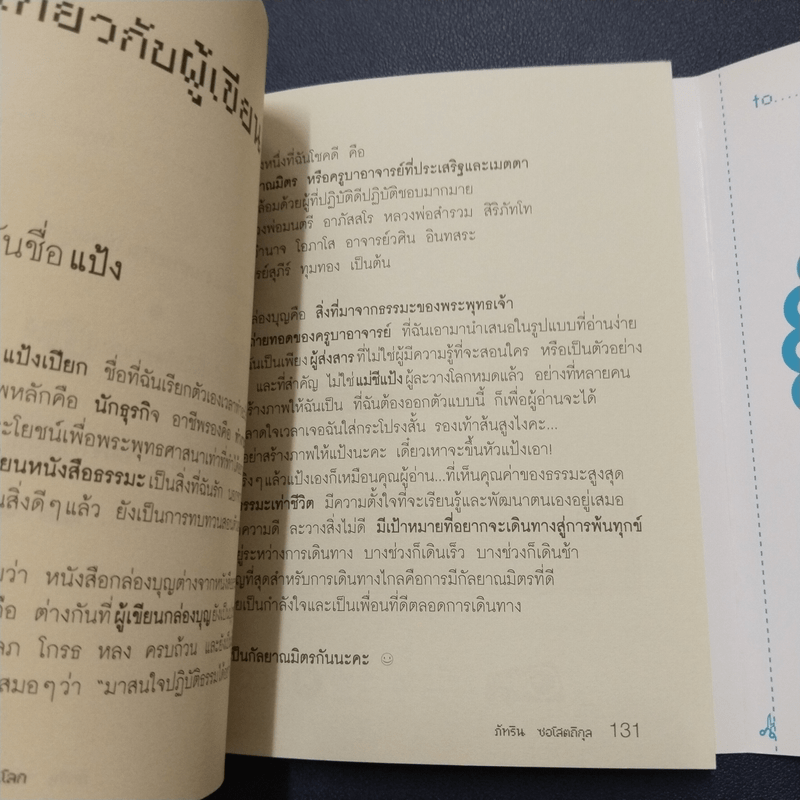 เกี่ยวกับผู้เขียน
ฉันชื่อ แป้ง
แป้งเปียก ชื่อที่ฉันเรียกตัวเอง
หลักคือ นักธุรกิจ อาชีพรองคือ
ประโยชน์เพื่อพระพุทธศาสนาเท่าที่
เขียนหนังสือธรรมะ เป็นสิ่งที่ฉันรัก
สิ่งดีๆ แล้ว ยังเป็นการทบทวน
ว่า หนังสือกล่องบุญต่างจาก
คือ ต่างกันที่ ผู้เขียนกล่องบุญ
โลภ โกรธ หลง ครบถ้วน
เสมอๆ ว่า "มาสนใจปฏิบัติธรรม
โลก
หนึ่งที่ฉันโชคดี คือ
หรือครูบาอาจารย์ที่ประเสริฐและเมตตา
ล้อมด้วยผู้ที่ปฏิบัติดีปฏิบัติชอบมากมาย
หลวงพ่อมนตรี อาภัสสโร หลวงพ่อสำรวม สิริภัทโท
โอภาโส อาจารย์วศิน อินทสระ
สุภีร์ ทุมทอง เป็นต้น
กล่องบุญคือ สิ่งที่มาจากธรรมะของพระพุทธเจ้า
ถ่ายทอดของครูบาอาจารย์ ที่ฉันเอามานำเสนอในรูปแบบที่อ่านง่าย
ฉันเป็นเพียง ผู้ส่งสาร ที่ไม่ใช่ผู้มีความรู้ที่จะสอนใคร หรือเป็นตัวอย่าง
และที่สำคัญ ไม่ใช่ แม่ชีแป้ง ผู้ละวางโลกหมดแล้ว อย่างที่หลายคน
สร้างภาพให้ฉันเป็น ที่ฉันต้องออกตัวแบบนี้ ก็เพื่อผู้อ่านจะได้
เวลาเจอฉันใส่กระโปรงสั้น รองเท้าส้นสูงไงคะ...
อย่าสร้างภาพให้แป้งนะคะ เดี๋ยวเหาจะขึ้นหัวแป้งเอา!
จริงๆ แล้วแป้งเองก็เหมือนคุณผู้อ่าน...ที่เห็นคุณค่าของธรรมะสูงสุด
ธรรมะเท่าชีวิต มีความตั้งใจที่จะเรียนรู้และพัฒนาตนเองอยู่เสมอ
ความดี ละวางสิ่งไม่ดี มีเป้าหมายที่อยากจะเดินทางสู่การพ้นทุกข์
อยู่ระหว่างการเดินทาง บางช่วงก็เดินเร็ว บางช่วงก็เดินช้า
ที่สุดสำหรับการเดินทางไกลคือการมีกัลยาณมิตรที่ดี
เป็นกำลังใจและเป็นเพื่อนที่ดีตลอดการเดินทาง
เป็นกัลยาณมิตรกันนะคะ ☺
ภัทริน ซอโสตถิกุล 131
to.....